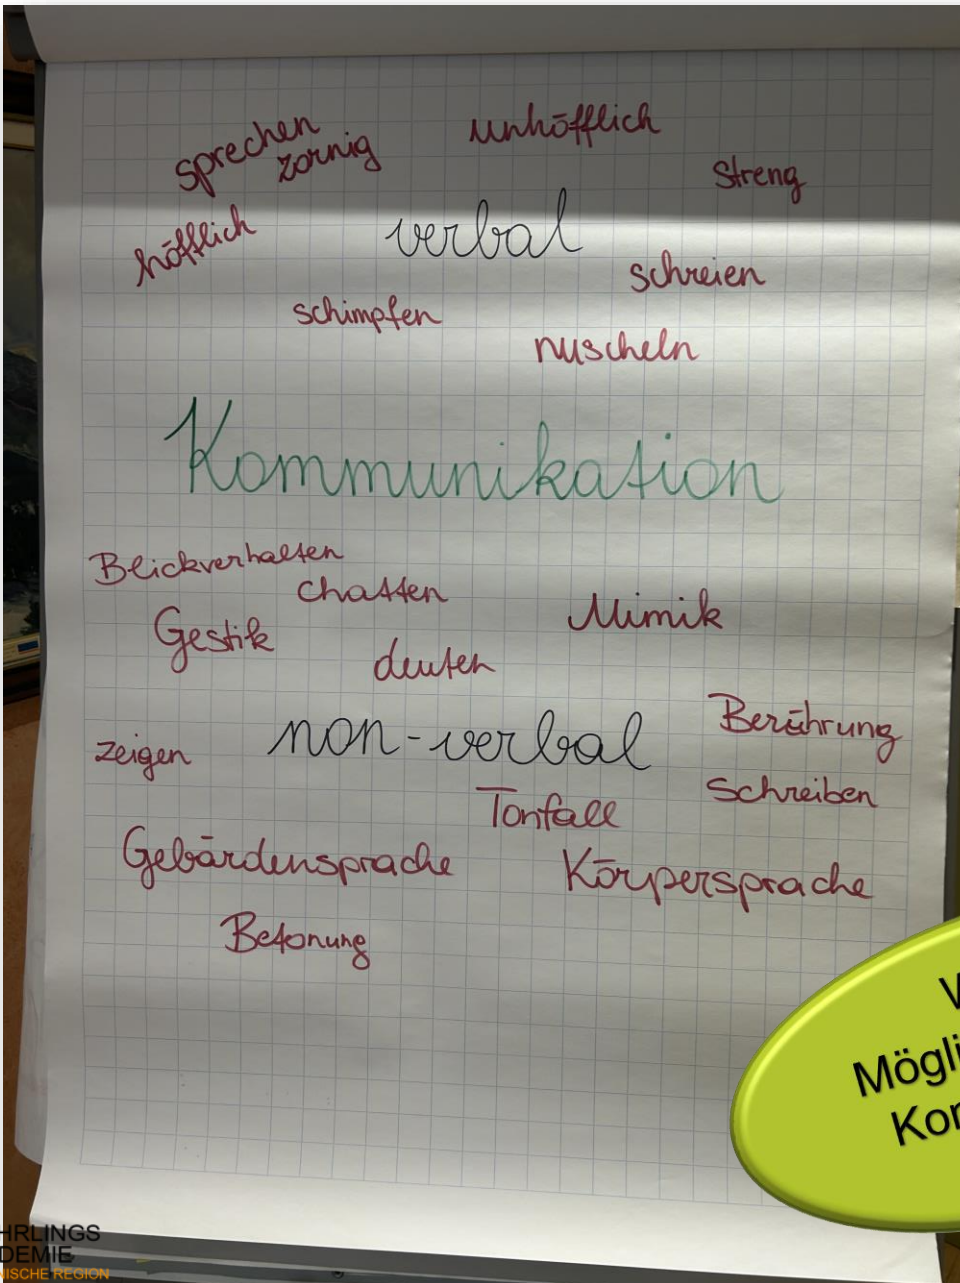 sprechen
zornig
unhöfflich
streng
höfflich
verbal
schreien
schimpfen
nuscheln
Kommunikation
Blickverhalten
chatten
Mimik
Gestik
deuten
Berührung
non-verbal
zeigen
Schreiben
Tonfall
Gebärdensprache
Körpersprache
Betonung
W
Mögli
Kor
HRLINGS
DEMIE
NISCHE REGION